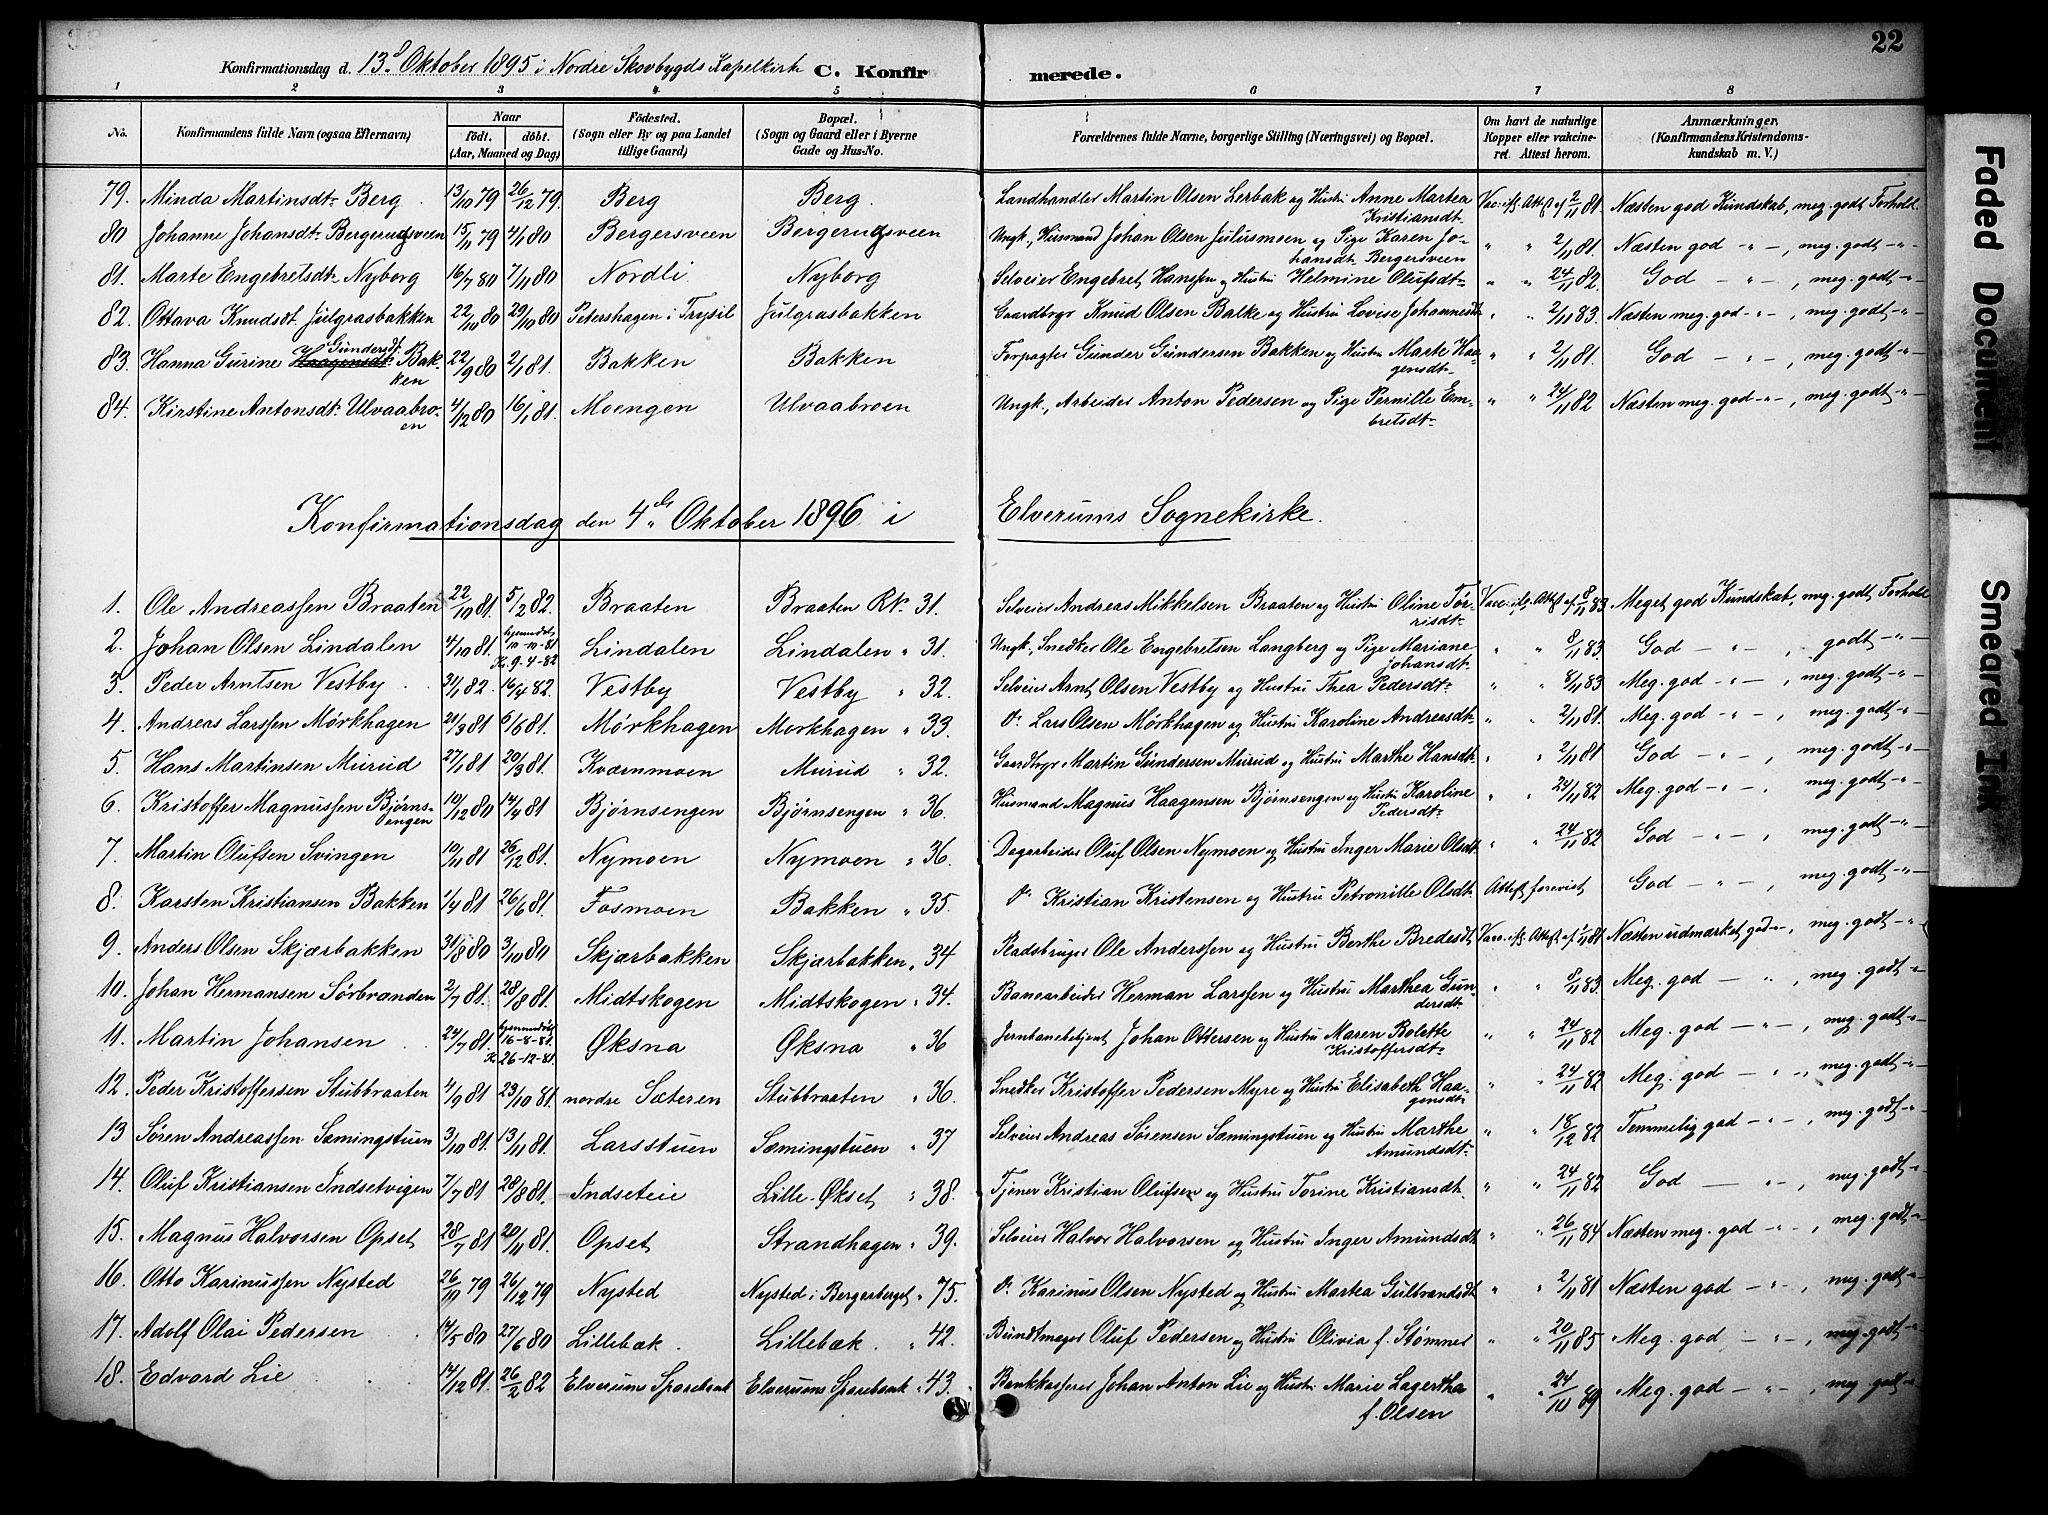 22
Konfirmationsdag d. 13de Oktober 1895 i Nordre Skovbygds Kapelkirke C. Konfirmerede.
1 2 3 4 5 6 7 8
No. Konfirmandens fulde Navn (ogsaa Efternavn) Naar født. døbt. (Aar, Maaned og Dag) Fødested. (Sogn eller By og paa Landet tillige Gaard) Bopæl. (Sogn og Gaard eller i Byerne Gade og Hus-No. Forældrenes fulde Navne, borgerlige Stilling (Næringsvei) og Bopæl. Om havt de naturlige Kopper eller vakcineret. Attest herom. Anmærkninger. (Konfirmandens Kristendomskundskab m. V.)
79. Minda Martinsdt. Berg 13/10 79 26/12 79. Berg Berg. Landhandler Martin Olsen Lerbak og Hustru Anne Martea Kristiansdt. Vac. ifl. Attest af 2/11 81. Næsten god Kundskab, meg. godt Forhold
80 Johanne Johansdt. Bergerudsveen 15/11 79 4/1 80 Bergersveen Bergerudsveen Ungk., Husmand Johan Olsen Julusmoen og Pige Karen Johansdt. Bergersveen " " 2/11 81. Næsten god - " -, meg. godt - " -
81. Marte Engebretsdt. Nyborg 16/7 80 7/11 80 Nordli Nyborg Selveier Engebret Hanssen og Hustru Helmine Olufsdt. " " 24/11 82. God - " -, meg. godt - " -
82. Ottava Knudsdt. Julgrasbakken 22/10 80 29/10 80 Petershagen i Trysil Julgrasbakken Gaardbrgr. Knud Olsen Balke og Hustru Lovise Johannesdt. " " 2/11 83. Næsten meg. god - " -, meg. godt - " -
83. Hanna Gurine Haagensdt. Gundersdt. Bakken 22/9 80 2/1 81. Bakken Bakken Forpagter Gunder Gundersen Bakken og Hustru Marte Haagensdt. " " 2/11 81. God - " -, meg. godt - " -
84. Kirstine Antonsdt. Ulvaabroen 4/12 80 16/1 81. Moengen Ulvaabroen Ungk., Arbeider Anton Pedersen og Pige Pernille Embretsdt. " " 24/11 82 Næsten meg. god - " -, meg. godt - " -
Konfirmationsdag den 4de Oktober 1896 i Elverums Sognekirke.
1. Ole Andreassen Braaten 22/10 81 5/2 82. Braaten Braaten Rk. 31. Selveier Andreas Mikkelsen Braaten og Hustru Oline Tørrisdt. Vacc. ifl. Attest af 8/11 83. Meget god Kundskab, meg. godt Forhold
2. Johan Olsen Lindalen 4/10 81 hjemmedøbt K. 9-4-82 Lindalen Lindalen " 31. Ungk., Snedker Ole Engebretsen Langberg og Pige Mariane Johansdt. " " 8/11 83. God - " -, godt - " -
3. Peder Arntsen Vestby 31/1 82. 16/4 82. Vestby Vestby " 32. Selveier Arnt Olsen Vestby og Hustru Thea Pedersdt. " " 8/11 83 Meg. god - " -, meg. godt - " -
4. Andreas Larssen Mørkhagen 20/3 81 6/6 81. Mørkhagen Mørkhagen " 33. Do. Lars Olsen Mørkhagen og Hustru Karoline Andreasdt. " " 2/11 81. Meg. god - " -, meg. godt - " -
5. Hans Martinsen Murud 27/1 81 20/3 81. Kværnmoen Murud " 32. Gaardbrgr. Martin Gundersen Murud og Hustru Marthe Hansdt. " " 2/11 81 God - " -, meg. godt - " -
6. Kristoffer Magnussen Bjørnsengen 10/12 80 14/4 81 Bjørnsengen Bjørnsengen " 36. Husmand Magnus Haagensen Bjørnsengen og Hustru Karoline Pedersdt. " " 24/11 82 Meg. god - " -, meg. godt - " -
7. Martin Olufsen Svingen 10/11 81 26/12 81. Nymoen Nymoen " 36. Dagarbeider Oluf Olsen Nymoen og Hustru Inger Marie Olsdt. " " 24/11 82 God - " -, meg. godt - " -
8. Karsten Kristiansen Bakken 1/4 81 26/6 81. Fosmoen Bakken " 35. Do. Kristian Kristensen og Hustru Petronille Olsdt. Attest forevist God - " -, meg. godt - " -
9. Anders Olsen Skjærbakken 31/8 80 3/10 80 Skjærbakken Skjærbakken " 34 Pladsbruger Ole Anderssen og Hustru Berthe Bredesdt. Vacc. ifl. Attest af 1/11 81 Næsten udmærket god - " -, meg. godt - " -
10. Johan Hermansen Sørbranden 2/7 81. 28/8 81. Midtskogen Midtskogen " 34. Banearbeider Herman Larssen og Hustru Marthea Gundersdt. " " 8/11 83. Meg. god - " -, meg. godt - " -
11. Martin Johansen 24/7 81. hjemmedøbt 16-8-81. K. 26-12-81 Øksna Øksna " 36 Jernbanebetjent Johan Ottersen og Hustru Maren Bolette Kristoffersdt. " " 24/11 82 Meg. god - " -, meg. godt - " -
12. Peder Kristoffersen Stubbraaten 4/9 81 23/10 81. nordre Sæteren Stubbraaten " 36. Snedker Kristoffer Pedersen Myre og Hustru Elisabeth Haagensdt. " " 24/11 82 Meg. god - " -, meg. godt - " -
13 Søren Andreassen Sæmingstuen 3/10 81. 13/11 81. Larsstuen Sæmingstuen " 37 Selveier Andreas Sørensen Sæmingstuen og Hustru Marthe Amundsdt. " " 18/12 82 Temmelig god - " -, meg. godt - " -
14. Oluf Kristiansen Indsetvigen 7/7 81 28/8 81. Indseteie Lille-Økset " 38. Tjener Kristian Olufsen og Hustru Torine Kristiansdt. " " 24/11 82 God - " -, meg. godt - " -
15. Magnus Halvorsen Opset 28/7 81 20/11 81. Opset Strandhagen " 39. Selveier Halvor Halvorsen og Hustru Inger Amundsdt. " " 26/11 84 Næsten meg. god - " -, meg. godt - " -
16. Otto Karinussen Nysted 26/10 79 26/12 79 Nysted Nysted i Bergerberget " 75. Do. Karinus Olsen Nysted og Hustru Martea Gulbrandsdt. " " 2/11 81 Næsten god - " -, meg. godt - " -
17. Adolf Olai Pedersen 14/5 80 27/6 80 Lillebæk. Lillebæk. " 42. Bundtmager Oluf Pedersen og Hustru Olivia f. Stømner " " 20/11 85 Meg. god - " -, meg. godt - " -
18. Edvard Lie 14/12 81. 26/2 82 Elverums Sparebank Elverums Sparebank " 43. Bankkasserer Johan Anton Lie og Hustru Marie Lagertha f. Olsen " " 24/10 89 Meg. god - " -, meg. godt - " -
Faded Document
Smeared Ink